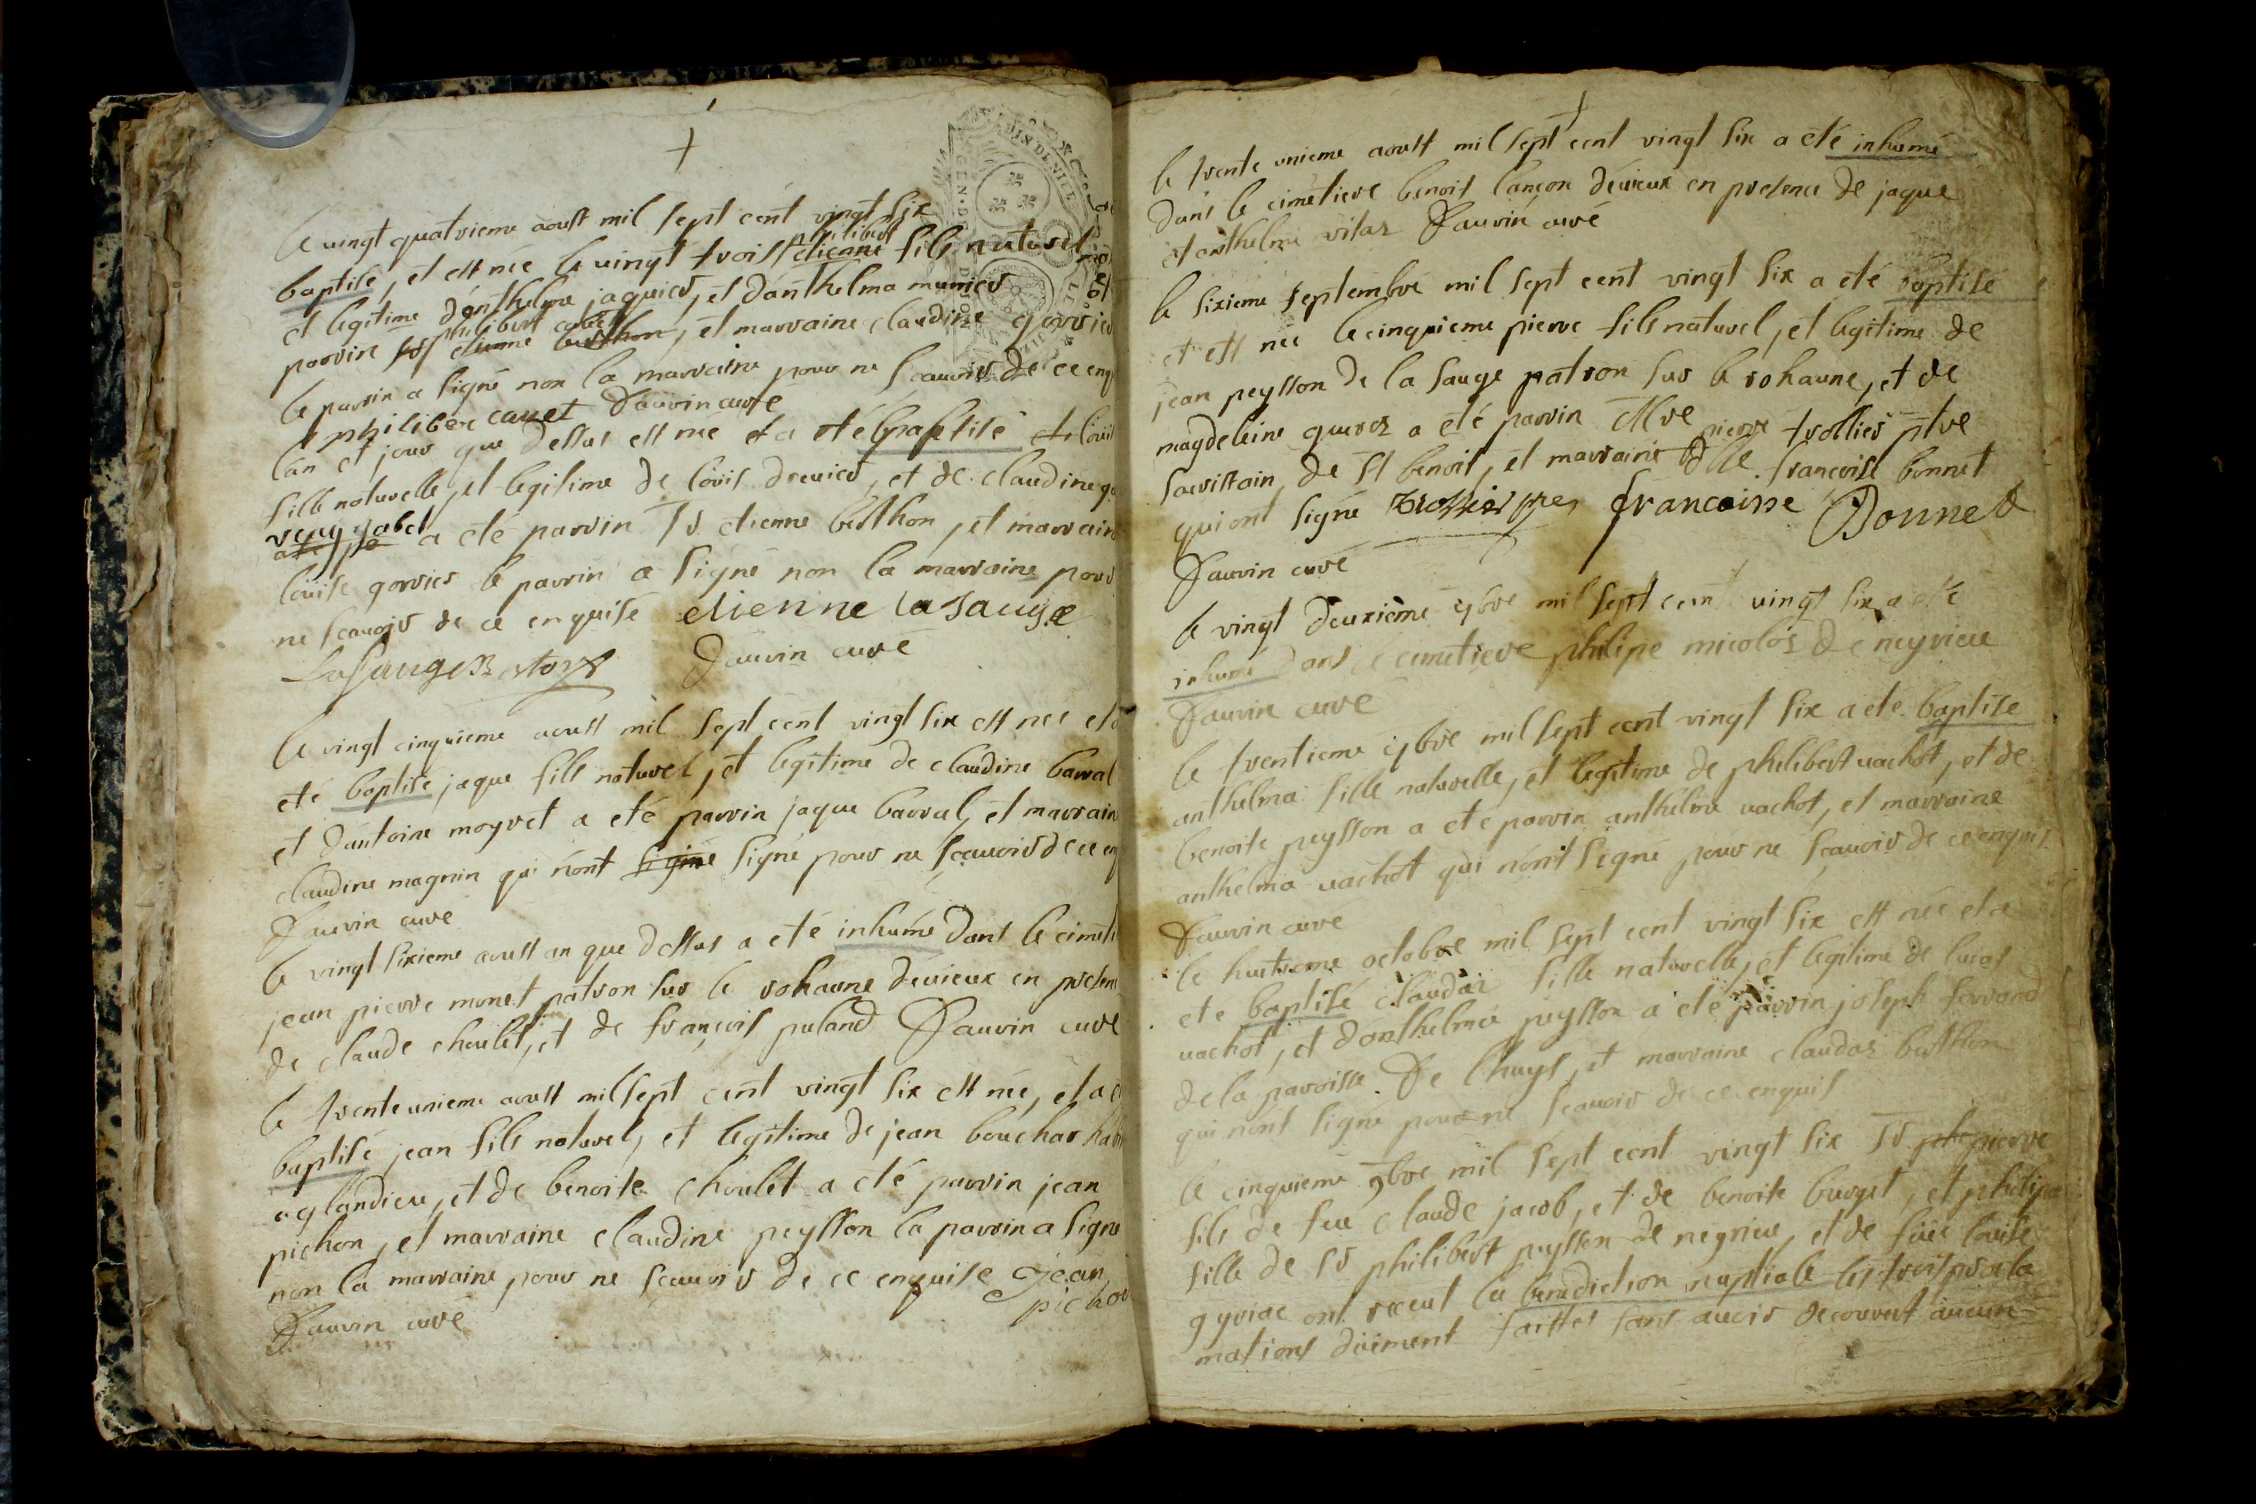 le vingt quatrieme aoust mil sept cent vingt six
baptisé, et est née le vingt trois philibert etienne fils naturel
et legitime danthelme jaquier, et danthelma munier
parrin sr philibert etienne berthon, et marraine claudine gorrier
le parrin a signé non la marraine pour ne scauoir de ce enq
philiber cauet Dauvin curé
lan et jour que dessus est née et a eté baptisé et louis
fille naturelle, et legitime de louis dreuier, et de claudine
a eté parrin Sr etienne berthon, et marraine
louise gorrier le parrin a signé non la marraine pour
ne scauoir de ce enquise etienne la sauge
Dauvin curé
le vingt cinquieme aoust mil sept cent vingt six est née et a
eté baptisé jaque fils naturel, et legitime de claudine barral
et dantoine moyret a eté parrin jaque barral, et marraine
claudine magnin qui nont signé signé pour ne scauoir de ce enq
Dauvin curé
le vingt sixieme aoust an que dessus a eté inhumé dans le cimeti
jean pierre monet patron sur le rohaune deuieux en presen
de claude choulet, et de françois puland Dauvin curé
le trente unieme aoust mil sept cent vingt six est née, et a e
baptisé jean fils naturel, et legitime de jean bouchar habi
aglandieu, et de benoite choulet a eté parrin jean
pichon, et marraine claudine peysson le parrin a signé
non la marraine pour ne scauoir de ce enquise Jean
pichon
Dauvin curé
le trente unieme aoust mil sept cent vingt six a eté inhumé
dans le cimetiere benoit lançon deuieux en presence de jaque
et anthelme vitar Dauvin curé
le sixieme septembre mil sept cent vingt six a eté baptisé
et est née le cinquieme pierre fils naturel, et legitime de
jean peysson de la sauge patron sur le rohaune, et de
magdeleine a eté parrin Mre pierre trollier ptre
sacristain de St benoit, et marraine dlle francoise bonnet
qui ont signé trollier ptre francoisse Bonnet
Dauvin curé
le vingt deuxieme 7bre mil sept cent vingt six a eté
inhumé dans le cimetiere philipe micoloz de neyrieu
Dauvin curé
le trentieme 7bre mil sept cent vingt six a eté baptisé
anthelma fille naturelle, et legitime de philibert vachot, et de
benoite peysson a eté parrin anthelme vachot, et marraine
anthelma vachot qui nont signé pour ne scauoir de ce enquis
Dauvin curé
le huitieme octobre mil sept cent vingt six est née et a
eté baptisé claudaz fille naturelle, et legitime de lucas
vachot, et danthelma peysson a eté parrin joseph ferrand
de la paroisse de lhuys, et marraine claudaz berthon
qui nont signé pour ne scauoir de ce enquis
le cinquieme 9bre mil sept cent vingt six Sr pierre
fils de feu claude jacob, et de benoite burget, et philipe
fille de sr philibert peysson de negrieu, et de feüe louise
gyriac ont receut la benediction nuptiale les trois procla
mations düement faittes sans auoir decouvert aucun